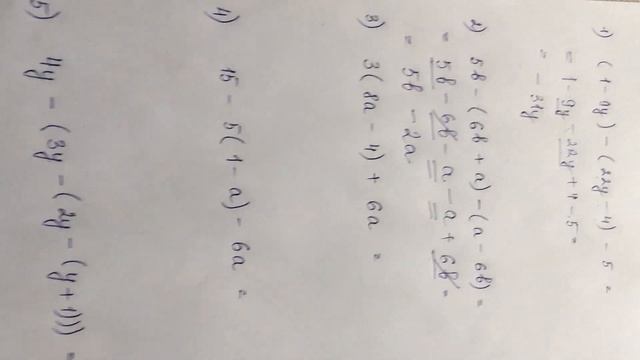 1) (1-9y) - (22y-4) - 5 =
= 1 - 9y - 22y + 4 - 5 =
= - 31y
2) 5b - (6b + a) - (a - 6b) =
= 5b - 6b - a - a + 6b =
= 5b - 2a
3) 3(8a - 4) + 6a =
4) 15 - 5(1 - a) - 6a =
5) 4y - (3y - (2y - (y + 1))) =